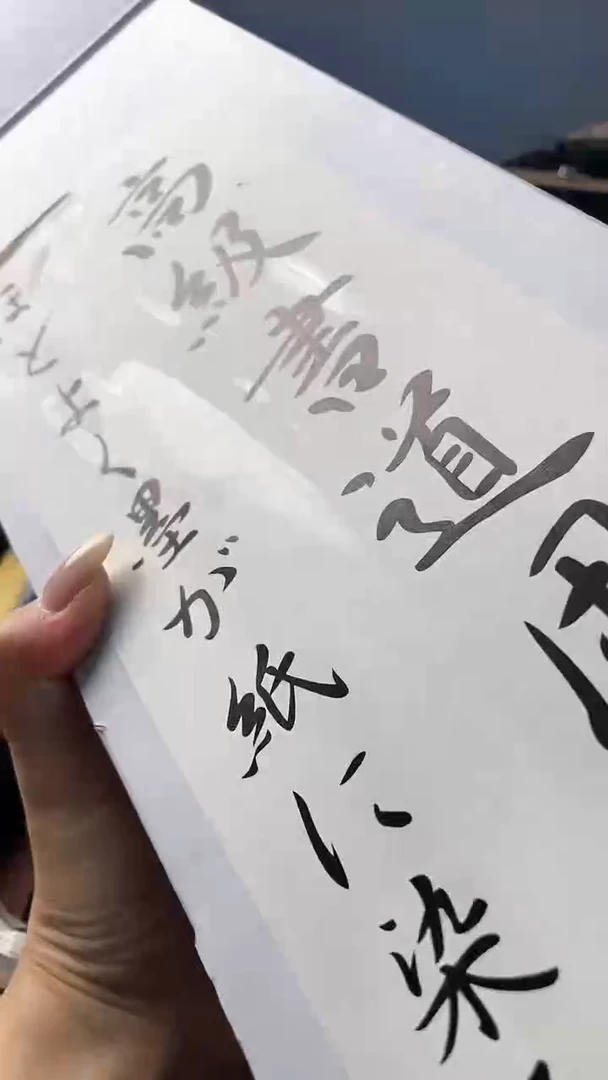 高級書道用
ほどよく墨が紙に染